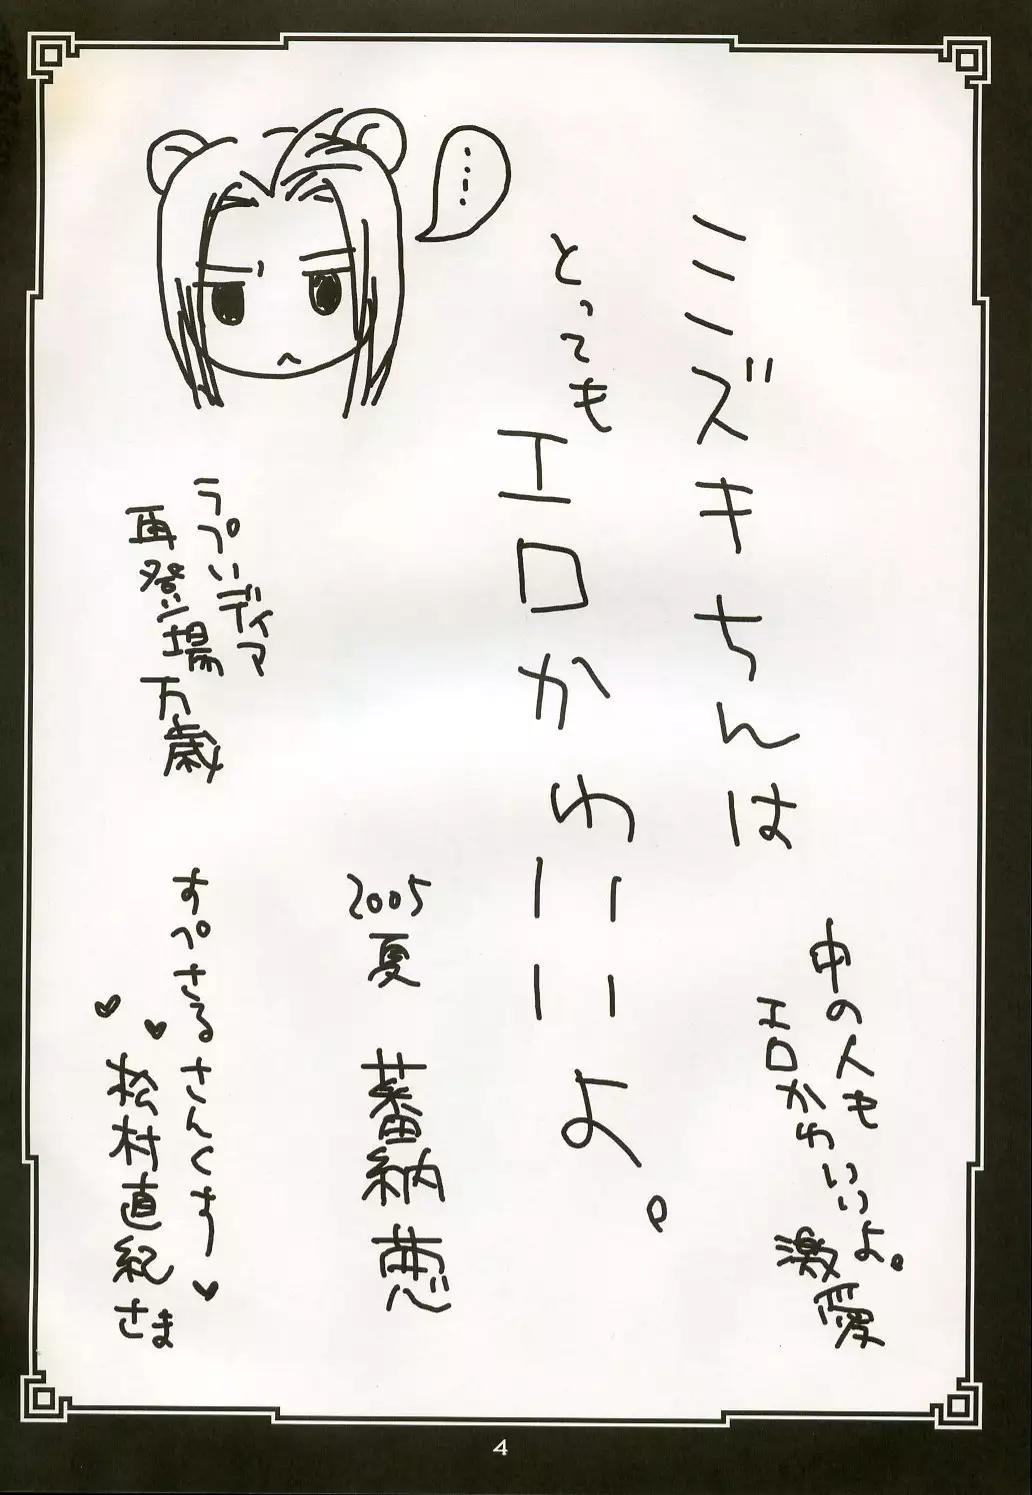 ミミズキちんは
とっても
エロかわいいよ。
中の人も
エロかわいいよ。
激愛
…
ラプいディア
再登場万歳
2005夏
蕃納葱
すぺさるさんくす♥
松村直紀さま
4